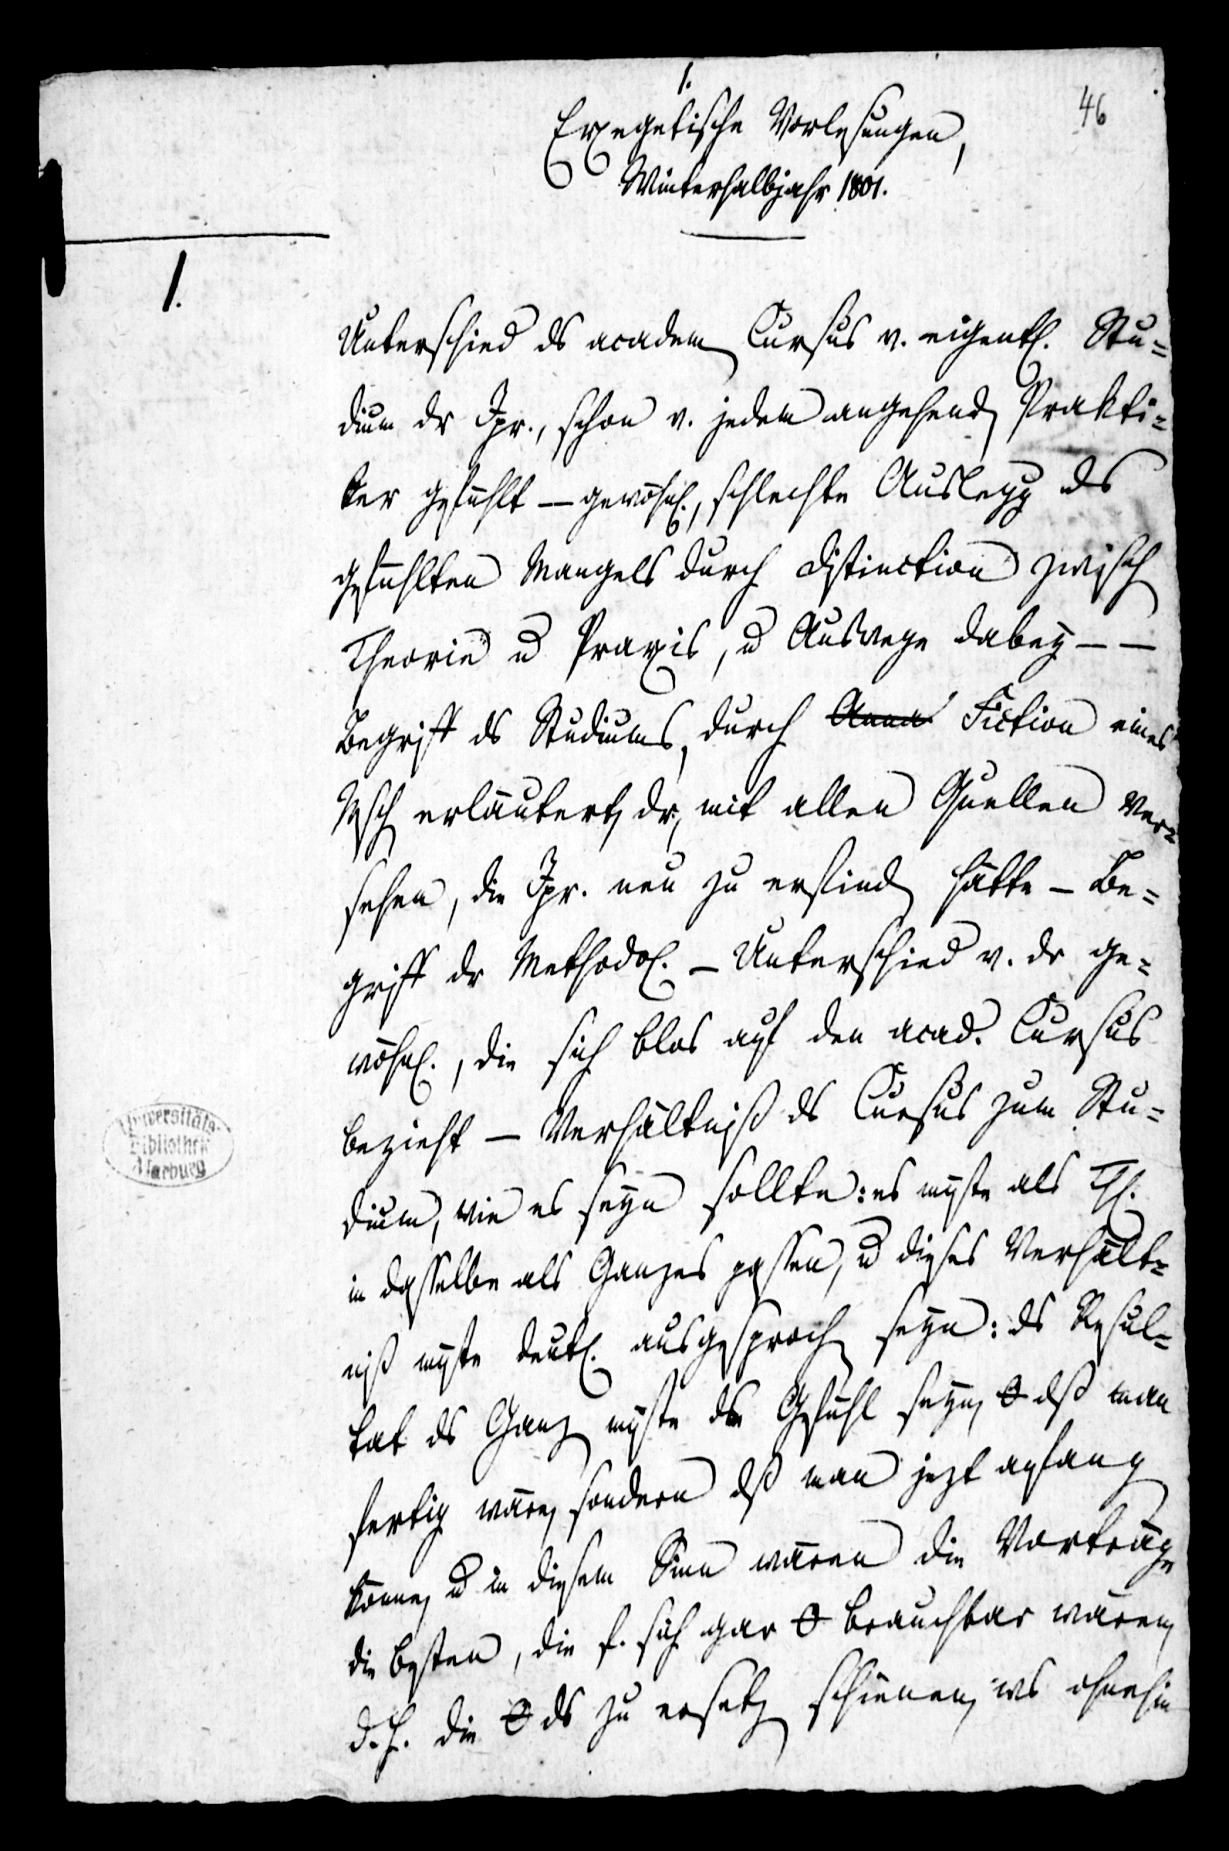 1.
46
Exegetische Vorlesungen,
Winterhalbjahr 1801.
1.
Unterschied ds academ Cursus v. eigentl. Stu=
dium dr Jpr., schon v. jedem angehend Prakti=
ker gefühlt – gewöhnl., schlechte Auslegg ds
gefühlten Mangels durch distinction zwisch
Theorie u Praxis, u Auswege dabey – –
Begriff ds Studiums, durch Anna Fiction eines
Msch erläutert, dr, mit allen Quellen ver=
sehen, die Jpr. neu zu erfind hätte – Be=
griff dr Methodol. – Unterschied v. dr ge=
wöhnl., die sich blos auf den acad. Cursus
bezieht – Verhältniß ds Cursus zum Stu=
dium, wie es seyn sollte: es müste als Th.
in dasselbe als Ganzes passen, u dieses Verhält=
niß müste deutl. ausgesproch seyn: ds Resul=
tat ds Ganz müste ds Gefühl seyn, 0 dß man
fertig wäre, sondern dß man jezt anfang
könne, u in diesem Sinn wären die Vorträge
die besten, die f. sich gar 0 brauchbar wären,
d. h. die 0 ds zu ersetz schienen, ws ohnehin
Universitäts-
Bibliothek
Marburg